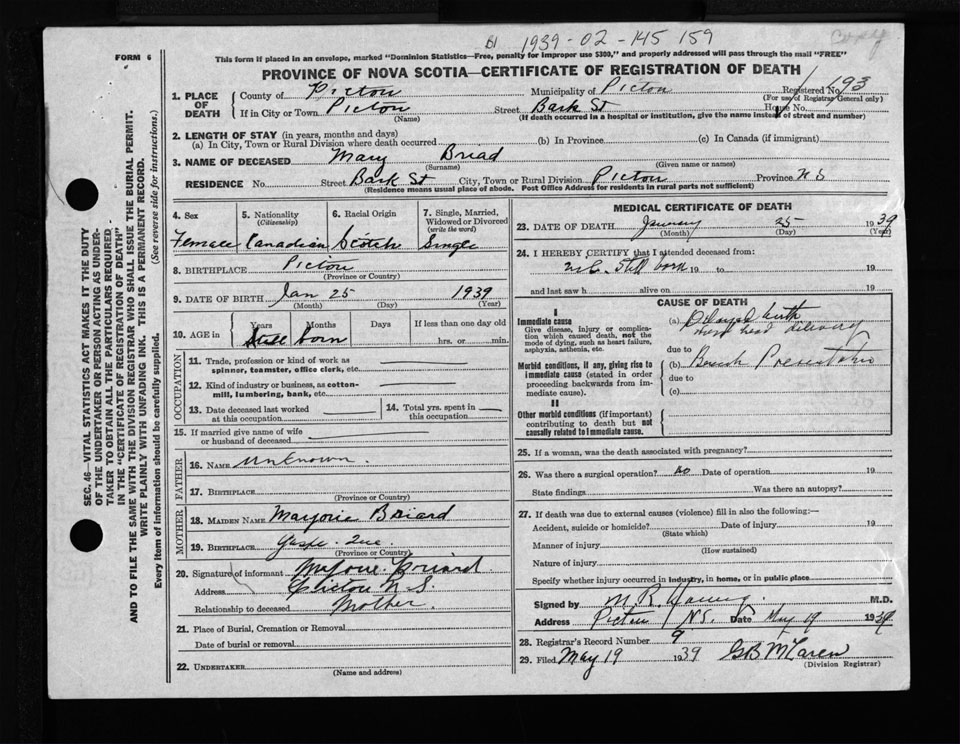 1939-02-145 159
Copy
FORM 6
This form if placed in an envelope, marked "Dominion Statistics—Free, penalty for improper use $300," and properly addressed will pass through the mail "FREE"
PROVINCE OF NOVA SCOTIA—CERTIFICATE OF REGISTRATION OF DEATH
1. PLACE OF DEATH
County of Pictou Municipality of Pictou Registered No. 193
(For use of Registrar General only)
If in City or Town Pictou Street Bark St House No.
(Name) (If death occurred in a hospital or institution, give the name instead of street and number)
2. LENGTH OF STAY (in years, months and days)
(a) In City, Town or Rural Division where death occurred (b) In Province (c) In Canada (if immigrant)
3. NAME OF DECEASED Mary Briad
(Surname) (Given name or names)
RESIDENCE No. Street Bark St City, Town or Rural Division Pictou Province N S
(Residence means usual place of abode. Post Office Address for residents in rural parts not sufficient)
4. Sex
Female
5. Nationality
(Citizenship)
Canadian
6. Racial Origin
Scotch
7. Single, Married, Widowed or Divorced
(write the word)
Single
8. BIRTHPLACE Pictou
(Province or Country)
9. DATE OF BIRTH Jan 25 1939
(Month) (Day) (Year)
10. AGE in Years Months Days If less than one day old
Still born hrs. or min.
OCCUPATION
11. Trade, profession or kind of work as
spinner, teamster, office clerk, etc.
12. Kind of industry or business, as cotton-
mill, lumbering, bank, etc.
13. Date deceased last worked
at this occupation
14. Total yrs. spent in
this occupation
15. If married give name of wife
or husband of deceased
FATHER
16. NAME Unknown.
17. BIRTHPLACE
(Province or Country)
MOTHER
18. MAIDEN NAME Marjorie Briard
19. BIRTHPLACE Gaspe. Que
(Province or Country)
20. Signature of informant Briard.
Address Pictou N.S
Relationship to deceased Mother.
21. Place of Burial, Cremation or Removal
Date of burial or removal
22. UNDERTAKER
(Name and address)
MEDICAL CERTIFICATE OF DEATH
23. DATE OF DEATH January 25 1939
(Month) (Day) (Year)
24. I HEREBY CERTIFY that I attended deceased from:
Still born 19 to 19
and last saw h alive on 19
CAUSE OF DEATH
I
Immediate cause
Give disease, injury or complica-
tion which caused death, not the
mode of dying, such as heart failure,
asphyxia, asthenia, etc.
(a) birth
head delivery
due to
Morbid conditions, if any, giving rise to
immediate cause (stated in order
proceeding backwards from im-
mediate cause).
(b) Breech Presentation
due to
(c)
II
Other morbid conditions (if important)
contributing to death but not
causally related to immediate cause.
25. If a woman, was the death associated with pregnancy?
26. Was there a surgical operation? no Date of operation 19
State findings Was there an autopsy?
27. If death was due to external causes (violence) fill in also the following:—
Accident, suicide or homicide? Date of injury 19
(State which)
Manner of injury
(How sustained)
Nature of injury
Specify whether injury occurred in industry, in home, or in public place
Signed by M R Young M.D.
Address Pictou N.S. Date May 19 1939
28. Registrar's Record Number 9
29. Filed May 19 1939 GB McLaren
(Division Registrar)
SEC. 46—VITAL STATISTICS ACT MAKES IT THE DUTY
OF THE UNDERTAKER OR PERSON ACTING AS UNDER-
TAKER TO OBTAIN ALL THE PARTICULARS REQUIRED
IN THE "CERTIFICATE OF REGISTRATION OF DEATH"
AND TO FILE THE SAME WITH THE DIVISION REGISTRAR WHO SHALL ISSUE THE BURIAL PERMIT.
WRITE PLAINLY WITH UNFADING INK. THIS IS A PERMANENT RECORD.
Every item of information should be carefully supplied. (See reverse side for instructions.)